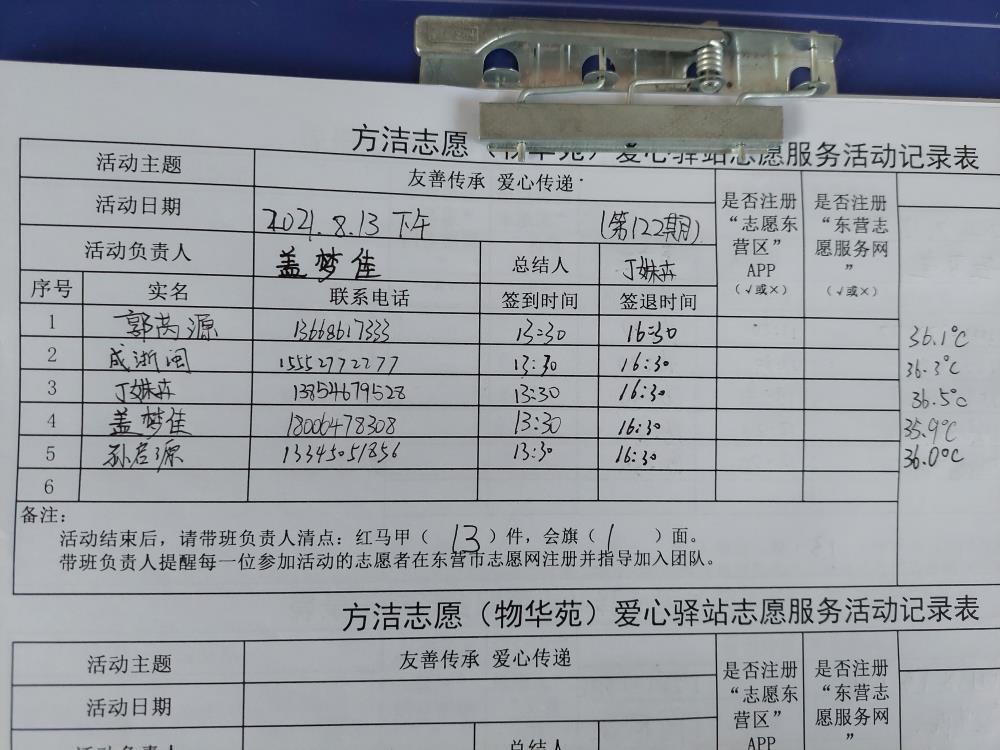 方洁志愿（物华苑）爱心驿站志愿服务活动记录表
活动主题 友善传承 爱心传递
活动日期 2021.8.13 下午 （第122期）
活动负责人 盖梦佳 总结人 丁姝卉
是否注册“志愿东营区”APP（√或×）
是否注册“东营志愿服务网”（√或×）
序号 实名 联系电话 签到时间 签退时间
1 郭芮源 13668617333 13:30 16:30 36.1℃
2 成浙闽 15552772277 13:30 16:30 36.3℃
3 丁姝卉 13854679528 13:30 16:30 36.5℃
4 盖梦佳 18006478308 13:30 16:30 35.9℃
5 孙启源 13345051856 13:30 16:30 36.0℃
6
备注：
活动结束后，请带班负责人清点：红马甲（ 13 ）件，会旗（ 1 ）面。
带班负责人提醒每一位参加活动的志愿者在东营市志愿网注册并指导加入团队。
方洁志愿（物华苑）爱心驿站志愿服务活动记录表
活动主题 友善传承 爱心传递
活动日期
是否注册“志愿东营区”APP
是否注册“东营志愿服务网”
活动负责人 总结人